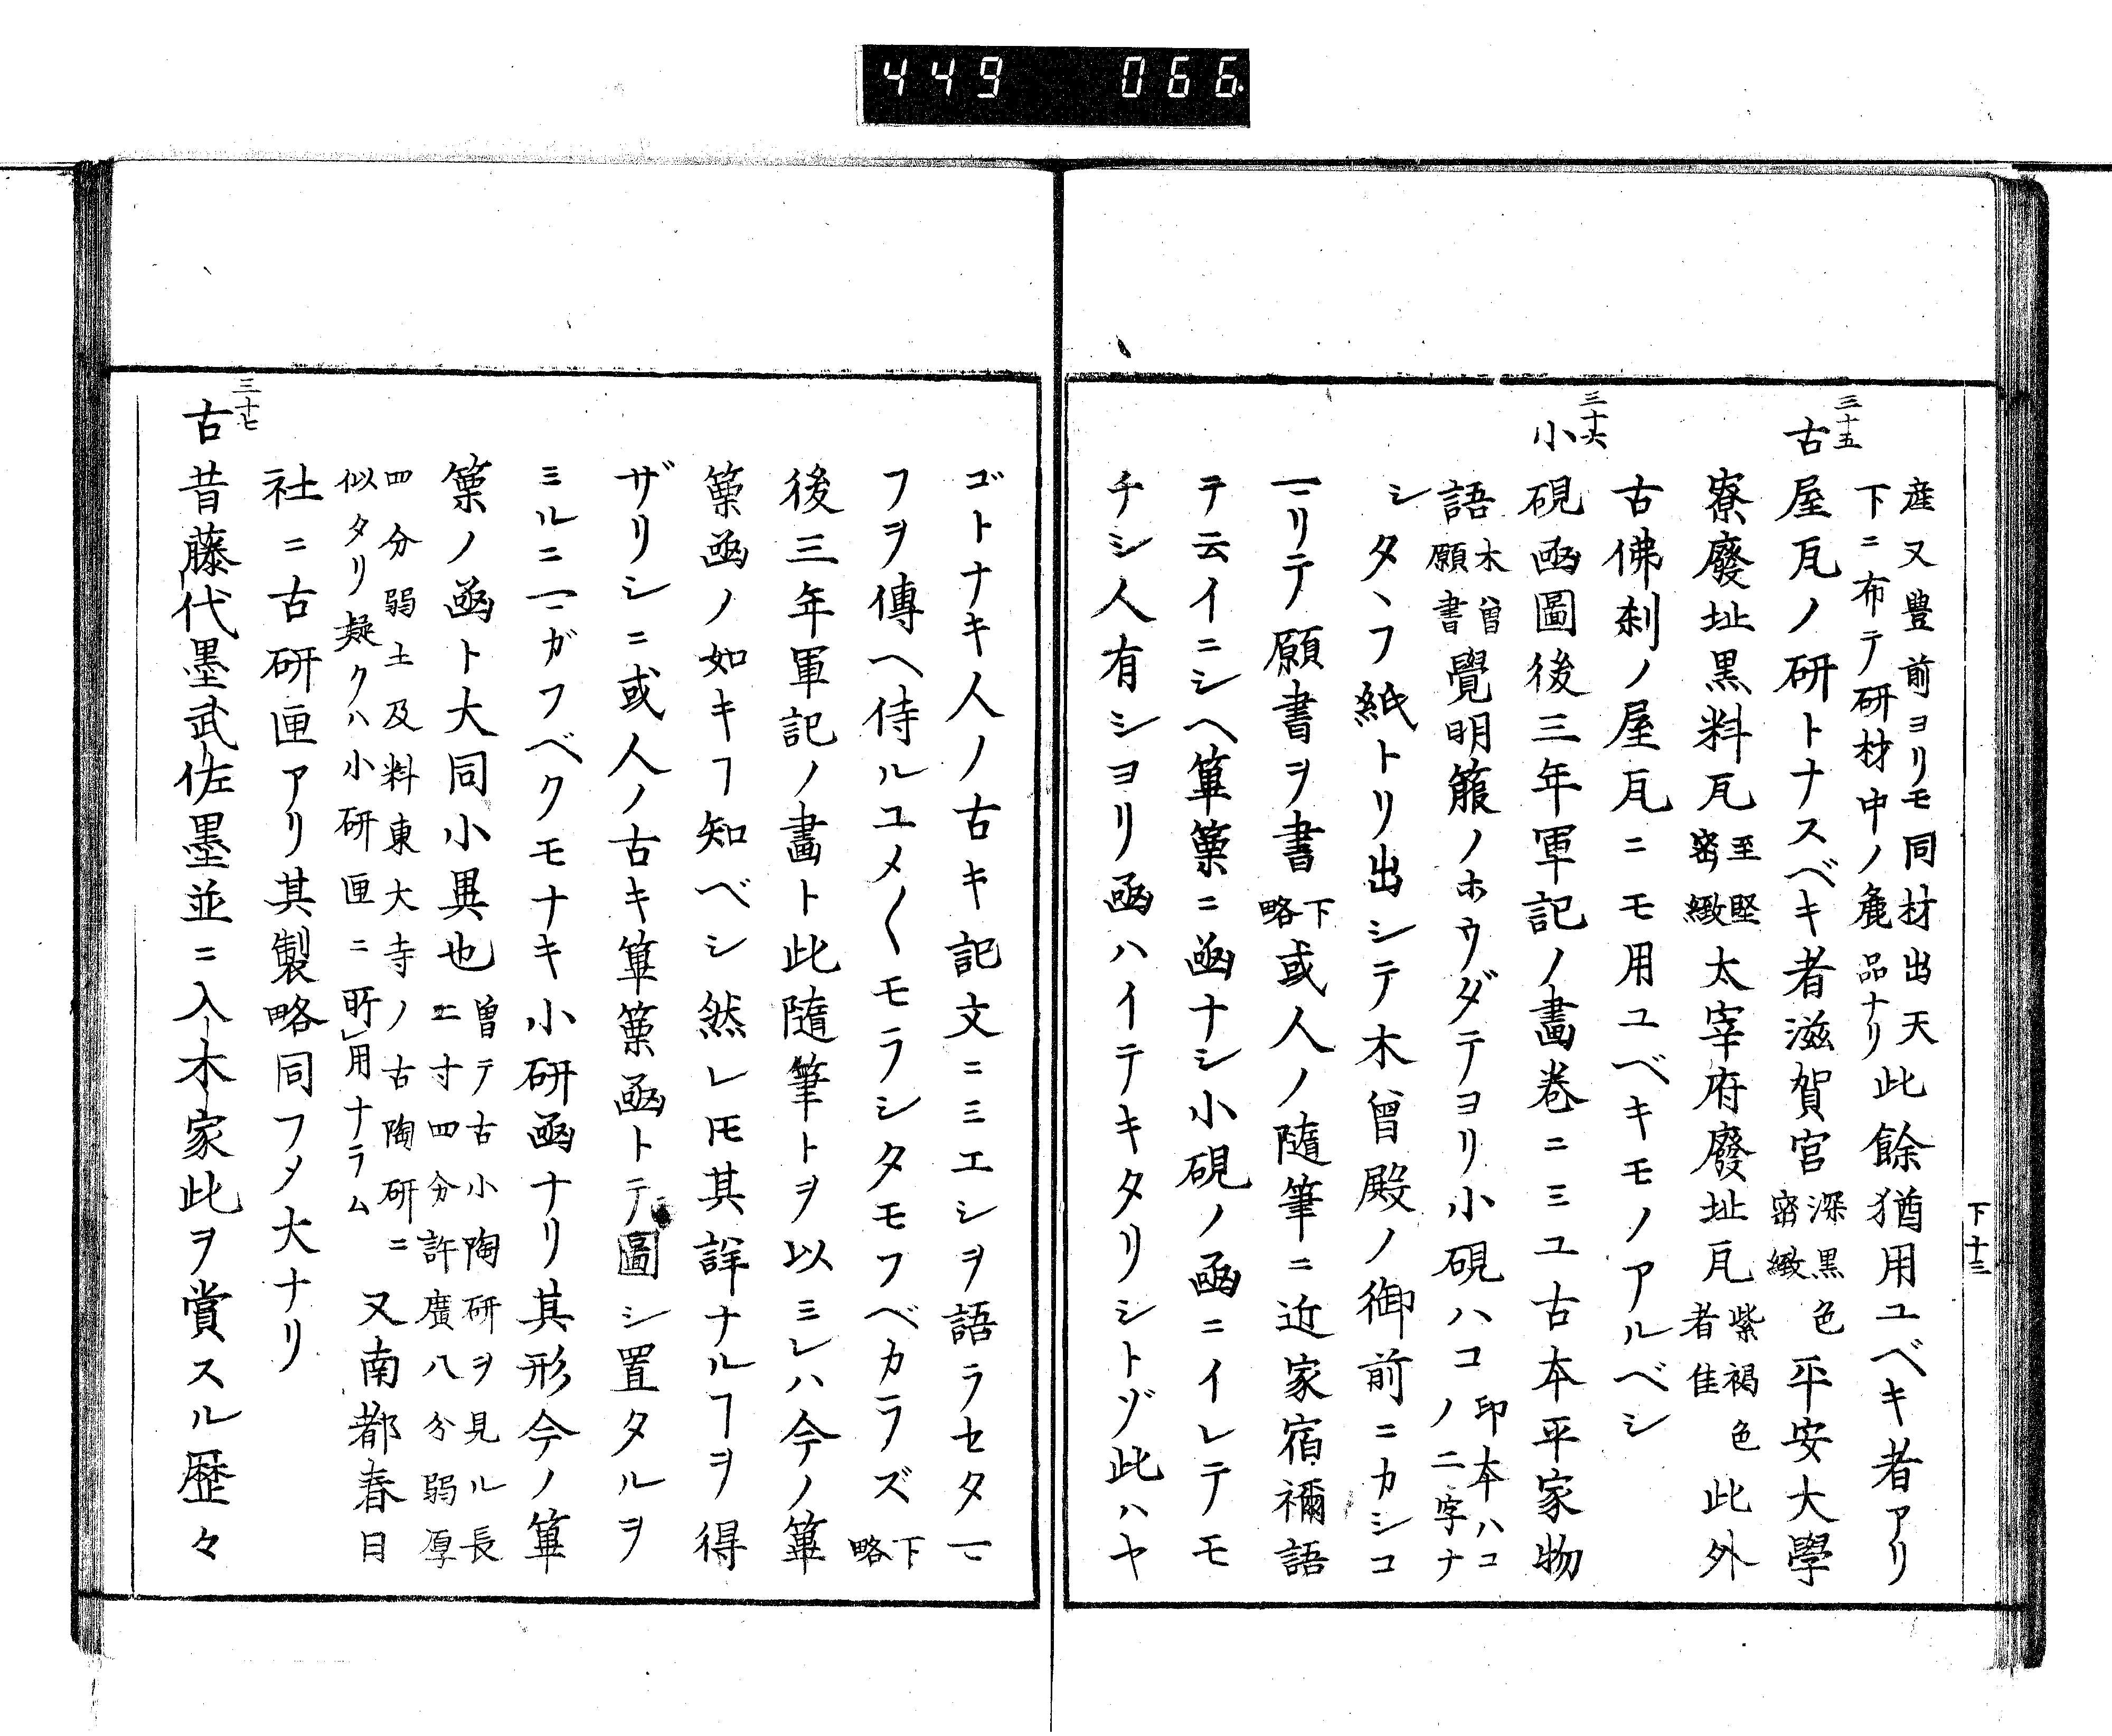 449 066
下十三
産又豊前ヨリモ同材出天
下ニ布テ研材中ノ麁品ナリ此餘猶用ユベキ者アリ
三十五
古屋瓦ノ研トナスベキ者滋賀宮深黒色密緻平安大學
寮廢址黒料瓦至堅密緻太宰府廢址瓦紫褐色者佳此外
古佛刹ノ屋瓦ニモ用ユベキモノアルベシ
三十六
小硯凾圖後三年軍記ノ畵巻ニミユ古本平家物
語木曽願書覺明箙ノホウダテヨリ小硯ハコ印本ハコノ二字ナ
シタヽフ紙トリ出シテ木曽殿ノ御前ニカシコ
マリテ願書ヲ書下略或人ノ随筆ニ近家宿禰語
テ云イニシヘ篳篥ニ凾ナシ小硯ノ凾ニイレテモ
チシ人有シヨリ凾ハイテキタリシトゾ此ハヤ
ゴトナキ人ノ古キ記文ニミエシヲ語ラセタマ
フヲ傳ヘ侍ルユメ〱モラシタモフベカラズ下略
後三年軍記ノ畵ト此随筆トヲ以ミレハ今ノ篳
篥凾ノ如キヿ知ベシ然レ𪜈其詳ナルヿヲ得
ザリシニ或人ノ古キ篳篥凾トテ圖シ置タルヲ
ミルニマガフベクモナキ小研凾ナリ其形今ノ篳
篥ノ凾ト大同小異也曽テ古小陶研ヲ見ル長二寸四分許廣八分弱厚
四分弱土及料東大寺ノ古陶研ニ
似タリ疑クハ小研匣ニ所用ナラム又南都春日
社ニ古研匣アリ其製略同フメ大ナリ
三十七
古昔藤代墨武佐墨並ニ入木家此ヲ賞スル歴々